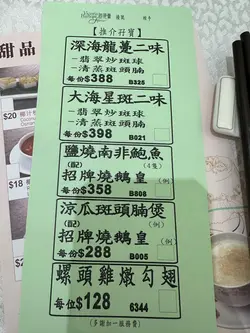 【推介孖寶】
深海龍躉二味
-翡翠炒斑球
-清蒸斑頭腩
每份$388 B325
大海星斑二味
-翡翠炒斑球
-清蒸斑頭腩
每份$398 B021
鹽燒南非鮑魚
配 (4隻)
招牌燒鵝皇 (例)
每份$358 B808
涼瓜斑頭腩煲
配 (例)
招牌燒鵝皇 (例)
每份$288 B005
螺頭雞燉勾翅
每位$128 6344
(多謝加一服務費)
甜品
$20
$18
$36